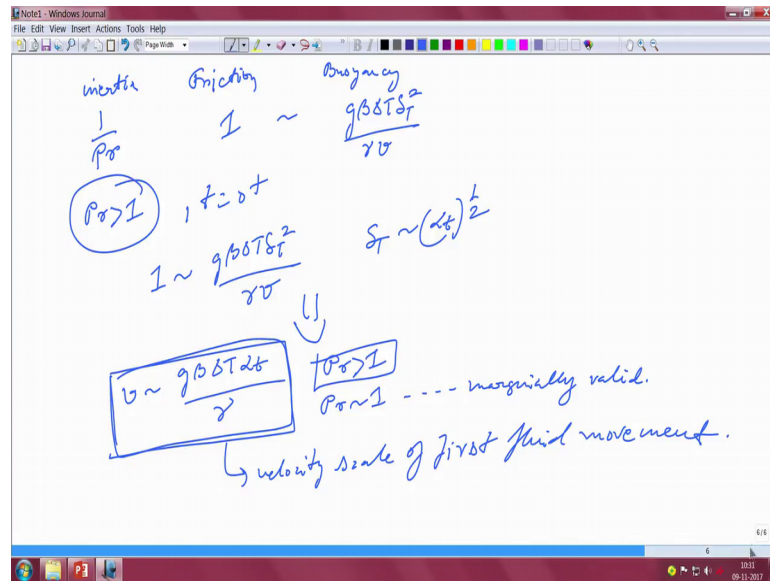 Note1 - Windows Journal
File Edit View Insert Actions Tools Help
Page Width
inertia Friction Buoyancy
1/Pr 1 ~ gβΔTδ_T^2/γv
Pr>1 , t=0+
1 ~ gβΔTδ_T^2/γv δ_T ~ (αt)^1/2
⇓
v ~ gβΔTαt/γ Pr>1
Pr~1 ---- marginally valid.
↳ velocity scale of first fluid movement.
6/6
6
10:31
09-11-2017